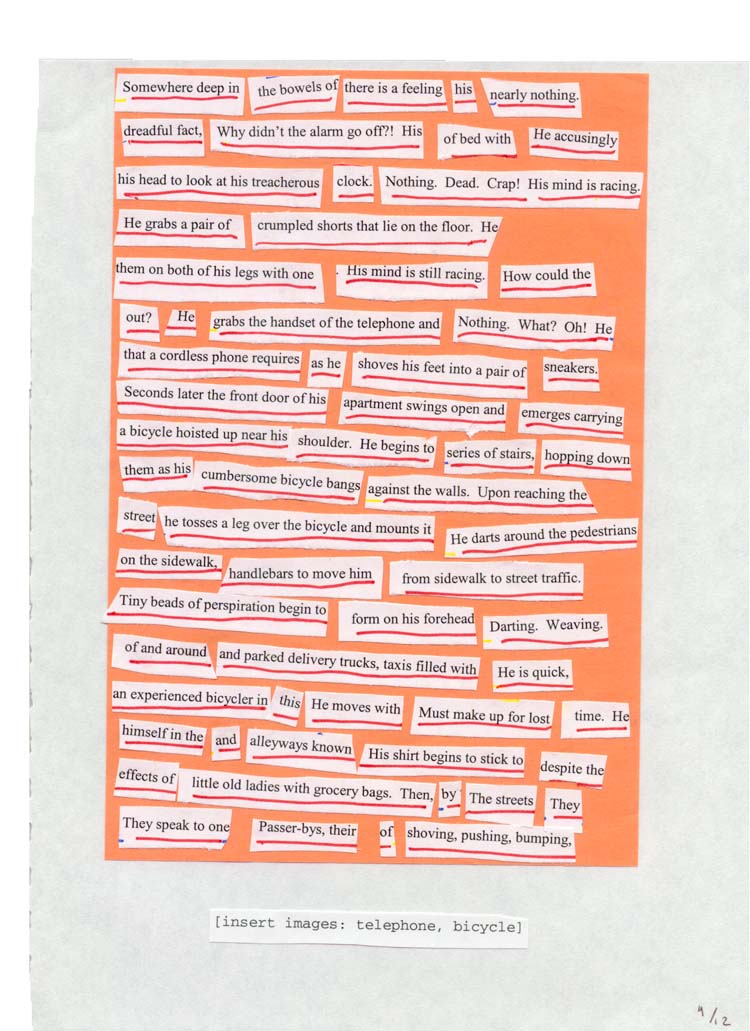 Somewhere deep in the bowels of there is a feeling his nearly nothing.
dreadful fact, Why didn't the alarm go off?! His of bed with He accusingly
his head to look at his treacherous clock. Nothing. Dead. Crap! His mind is racing.
He grabs a pair of crumpled shorts that lie on the floor. He
them on both of his legs with one His mind is still racing. How could the
out? He grabs the handset of the telephone and Nothing. What? Oh! He
that a cordless phone requires as he shoves his feet into a pair of sneakers.
Seconds later the front door of his apartment swings open and emerges carrying
a bicycle hoisted up near his shoulder. He begins to series of stairs, hopping down
them as his cumbersome bicycle bangs against the walls. Upon reaching the
street he tosses a leg over the bicycle and mounts it He darts around the pedestrians
on the sidewalk, handlebars to move him from sidewalk to street traffic.
Tiny beads of perspiration begin to form on his forehead Darting. Weaving.
of and around and parked delivery trucks, taxis filled with He is quick,
an experienced bicycler in this He moves with Must make up for lost time. He
himself in the and alleyways known His shirt begins to stick to despite the
effects of little old ladies with grocery bags. Then, by The streets They
They speak to one Passer-bys, their of shoving, pushing, bumping,
[insert images: telephone, bicycle]
4/12